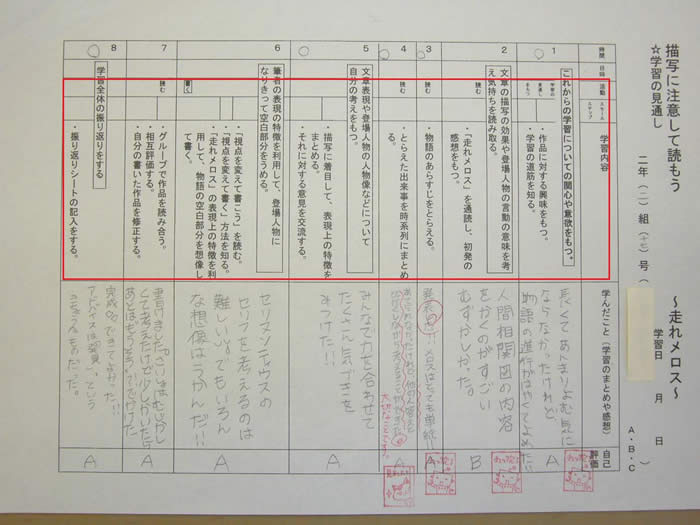 描写に注意して読もう
〜走れメロス〜
☆学習の見通し
二年(二)組(十二)号
学習日 月 日
A・B・C
時間
日時
活動
スモールステップ
学習内容
学んだこと(学習のまとめや感想)
自己評価
1
学習の見通しをもつ
これからの学習についての関心や意欲をもつ。
・作品に対する興味をもつ。
・学習の道筋を知る。
長くてあんまりよむ気に
ならなかったけれど、
物語の進行がはやくてよめた!!
A
2
読む
文章の描写の効果や登場人物の言動の意味を考
え気持ちを読み取る。
・「走れメロス」を通読し、初発の
感想をもつ。
人間相関図の内容
をかくのがすごい
むずかしかった。
B
3
読む
・物語のあらすじをとらえる。
メロスはとても単純!!
A
4
読む
・とらえた出来事を時系列にまとめ
る。
大切なことです。
A
5
読む
文章表現や登場人物の人物像などについて
自分の考えをもつ。
・描写に着目して、表現上の特徴を
まとめる。
・それに対する意見を交流する。
みんなで力を合わせて
たくさん気づきを
みつけた!!
A
6
書く
筆者の表現の特徴を利用して、登場人物に
なりきって空白部分をうめる。
・「視点を変えて書こう」を読む。
・「視点を変えて書く」方法を知る。
・「走れメロス」の表現上の特徴を利
用して、物語の空白部分を想像し
て書く。
セリヌンティウスの
セリフを考えるのは
難しい。でもいろん
な想像はうかんだ!!
A
7
読む
・グループで作品を読み合う。
・相互評価する。
・自分の書いた作品を修正する。
書けました。
くて考えたけど少しかいたら
A
8
学習全体の振り返りをする
・振り返りシートの記入をする。
完成できてよかった!!
アドバイスは
A